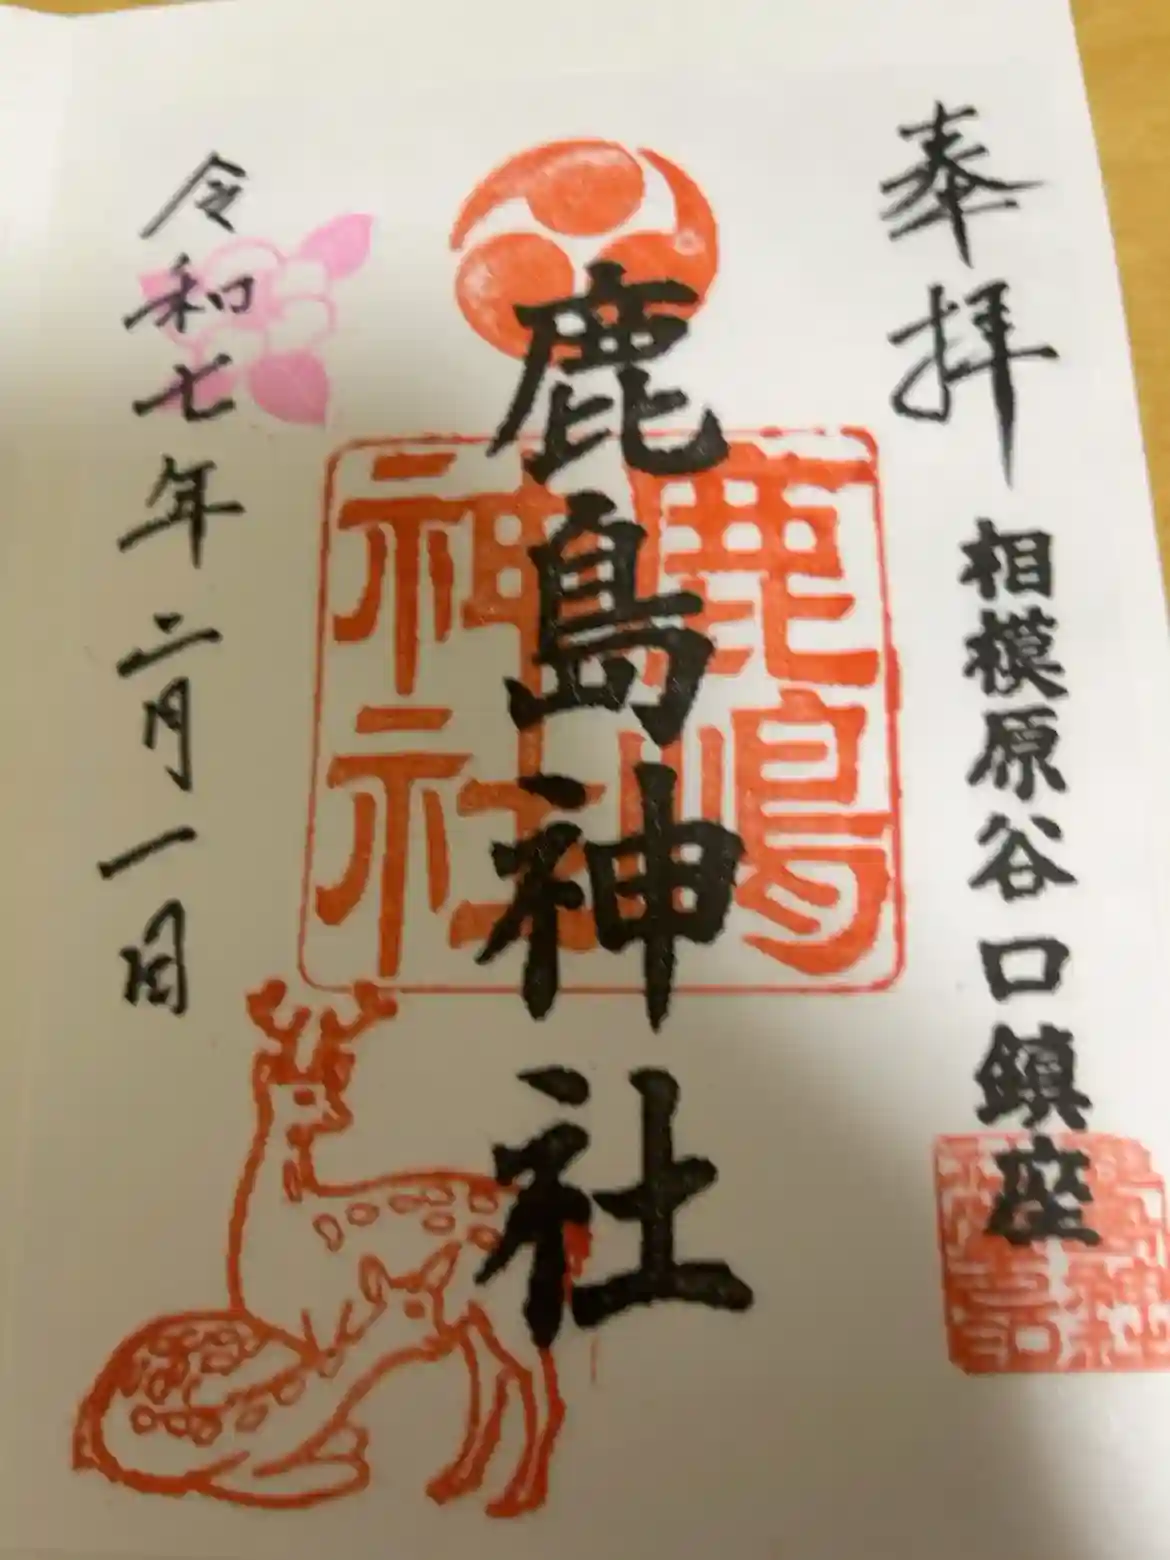 奉拝
相模原谷口鎮座
鹿島神社
鹿嶋
神社
令和七年二月一日